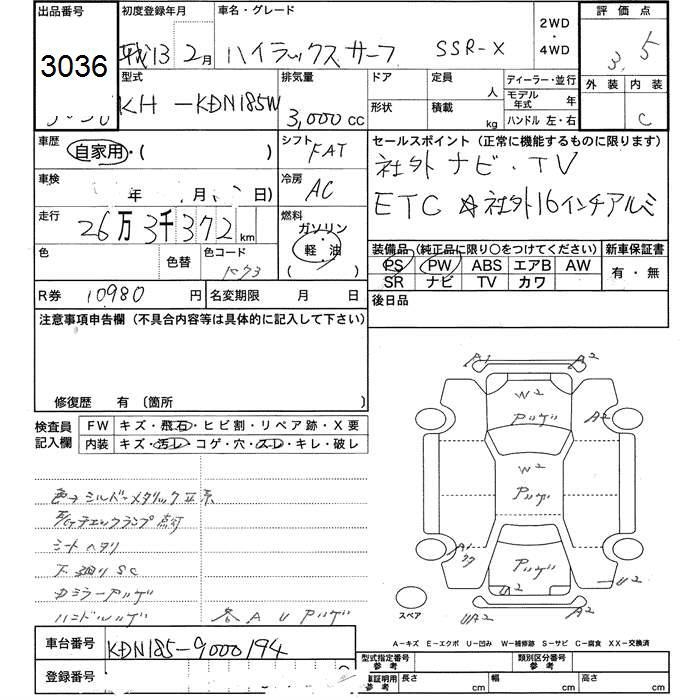 出品番号 初度登録年月 車名・グレード 2WD・4WD 評価点
3036 平成13 2月 ハイラックスサーフ SSR-X 3.5
型式 排気量 ドア 定員 人 ディーラー・並行 外装 内装
KH-KDN185W 3,000cc 形状 積載 kg モデル年式 年 C
ハンドル 左・右
車歴 自家用・( ) シフト FAT セールスポイント(正常に機能するものに限ります)
車検 年 月 日) 冷房 AC 社外ナビ・TV
走行 26万3千372km 燃料 ガソリン・軽油 ETC ☆社外16インチアルミ
色 色替 色コード ( )
装備品(純正品に限り○をつけてください) 新車保証書
PS PW ABS エアB AW 有・無
SR ナビ TV カワ
R券 10980円 名変期限 月 日 後日品
注意事項申告欄(不具合内容等は具体的に記入して下さい)
修復歴 有〔箇所
検査員記入欄 FW キズ・飛石・ヒビ割・リペア跡・X要
内装 キズ・汚レ・コゲ・穴・スレ・キレ・破レ
色→シルバーメタリック
チェックランプ点灯
シートヘタリ
下廻りSC
ミラーアハゲ
ハンドルハゲ 各AUアハゲ
A1 A2
W2
アハゲ A2
W2
アハゲ
A1
アハゲ U2
UA2 U2
スペア
A-キズ E-エクボ U-凹み W-補修跡 S-サビ C-腐食 XX-交換済
車台番号 KDN185-9000194
登録番号
型式指定番号 参考 類別区分番号 参考
車証明用 参考 長さ cm 幅 cm 高さ cm